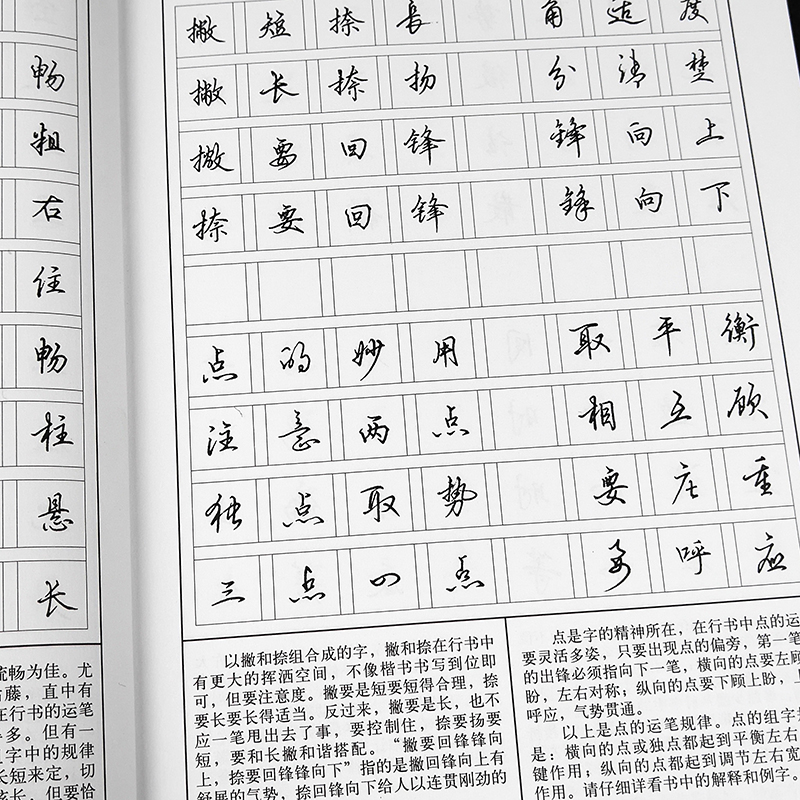 畅
粗
右
住
畅
柱
悬
长
流畅为佳。尤
古藤，直中有
在行书的运笔
多。但有一
字中的规律
长短来定，切
长，但要恰
撇 短 捺 长 角 适 度
撇 长 捺 扬 分 清 楚
撇 要 回 锋 锋 向 上
捺 要 回 锋 锋 向 下
点 的 妙 用 取 平 衡
注 意 两 点 相 互 顾
独 点 取 势 要 庄 重
三 点 四 点 要 呼 应
以撇和捺组合成的字，撇和捺在行书中
有更大的挥洒空间，不像楷书书写到位即
可，但要注意度。撇要是短要短得合理，捺
要长要长得适当。反过来，撇要是长，也不
应一笔甩出去了事，要控制住，捺要扬要
短，要和长撇和谐搭配。“撇要回锋锋向
上，捺要回锋锋向下”指的是撇回锋向上有
舒展的气势，捺回锋向下给人以连贯刚劲的
点是字的精神所在，在行书中点的运
要灵活多姿，只要出现点的偏旁，第一笔
的出锋必须指向下一笔，横向的点要左顾
盼，左右对称；纵向的点要下顾上盼，上
呼应，气势贯通。
以上是点的运笔规律。点的组字规
是：横向的点或独点都起到平衡左右
键作用；纵向的点都起到调节左右宽
作用。请仔细详看书中的解释和例字。